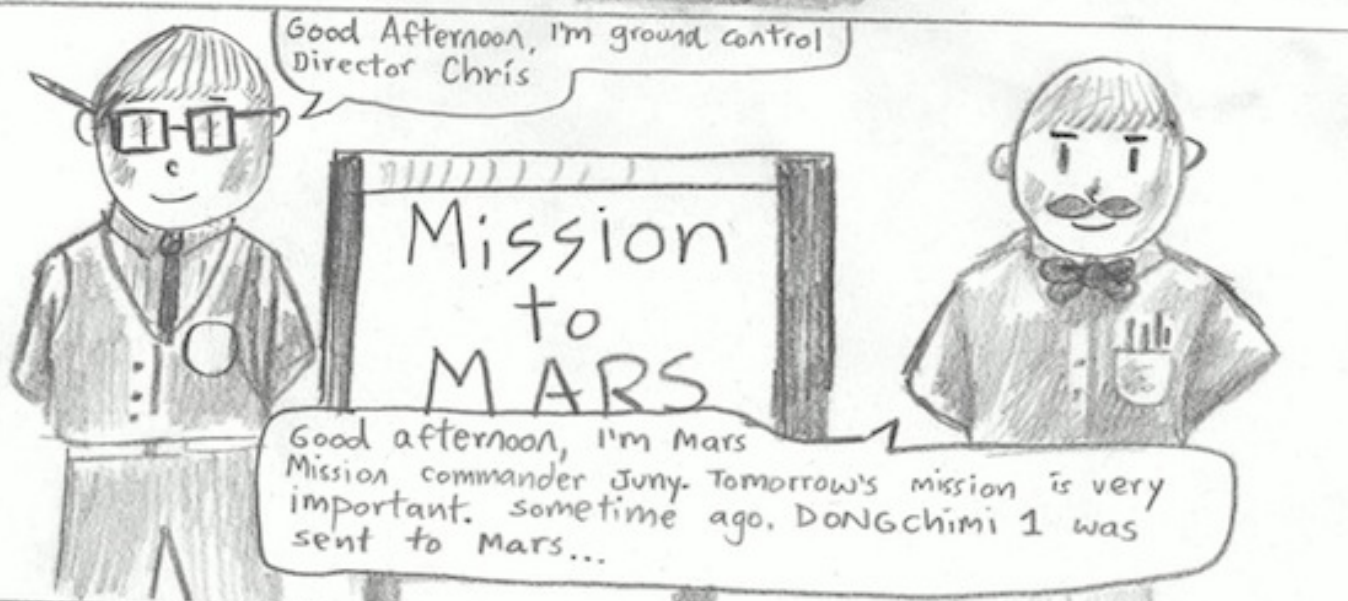 Good Afternoon, I'm ground control
Director Chris
Mission
to
MARS
Good afternoon, I'm Mars
Mission commander Juny. Tomorrow's mission is very
important. sometime ago. DONGchimi 1 was
sent to Mars...